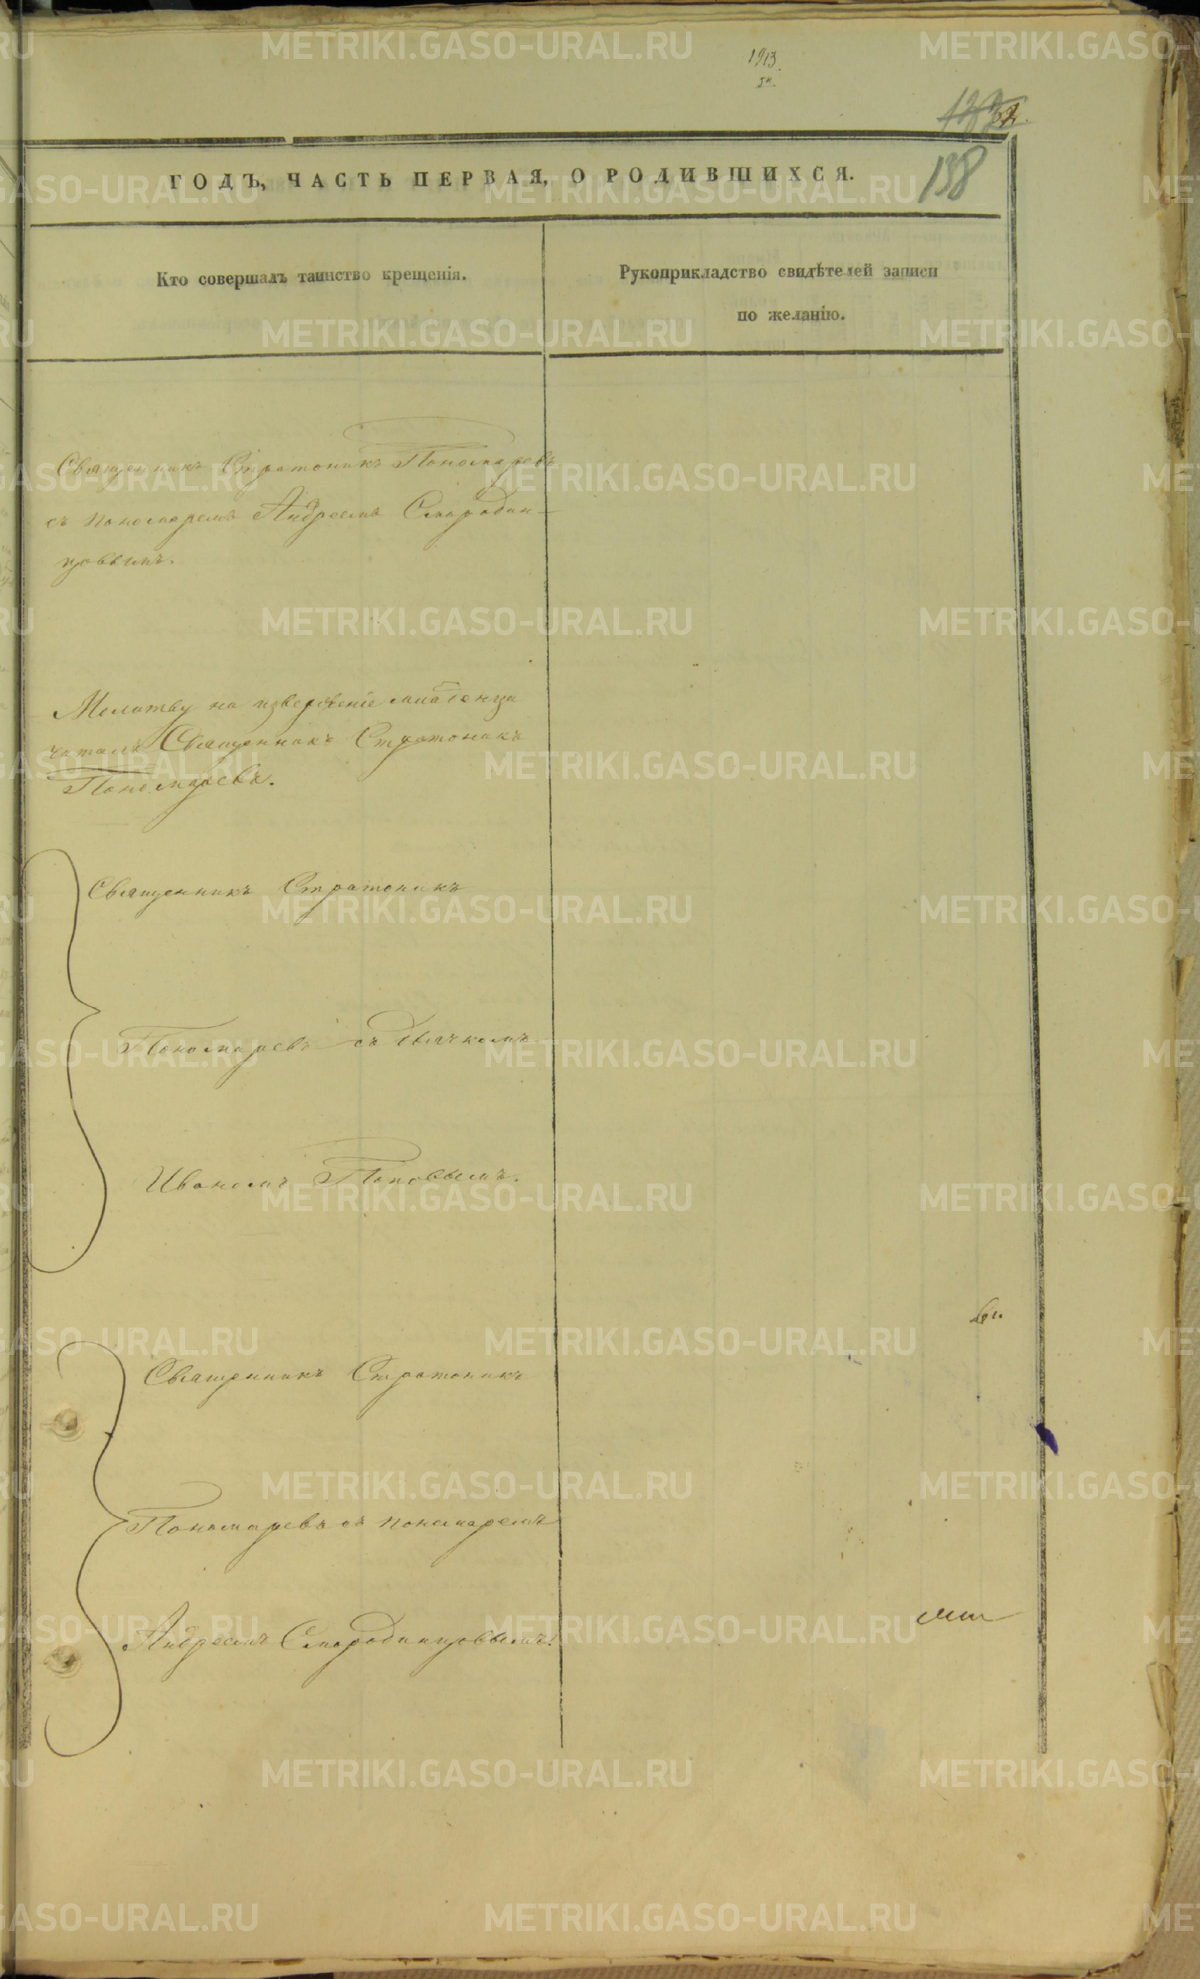 1913.
138
ГОДЪ, ЧАСТЬ ПЕРВАЯ, О РОДИВШИХСЯ.
Кто совершалъ таинство крещенія.
Рукоприкладство свидѣтелей записи
по желанію.
Священникъ Стратоникъ Пономаревъ
съ пономаремъ Андреемъ Смородин-
цовымъ.
Молитву на изверженіе младенца
читалъ Священникъ Стратоникъ
Пономаревъ.
Священникъ Стратоникъ
Пономаревъ съ дьячкомъ
Иваномъ Поповымъ.
Священникъ Стратоникъ
Пономаревъ съ пономаремъ
Андреемъ Смородинцовымъ.
METRIKI.GASO-URAL.RU